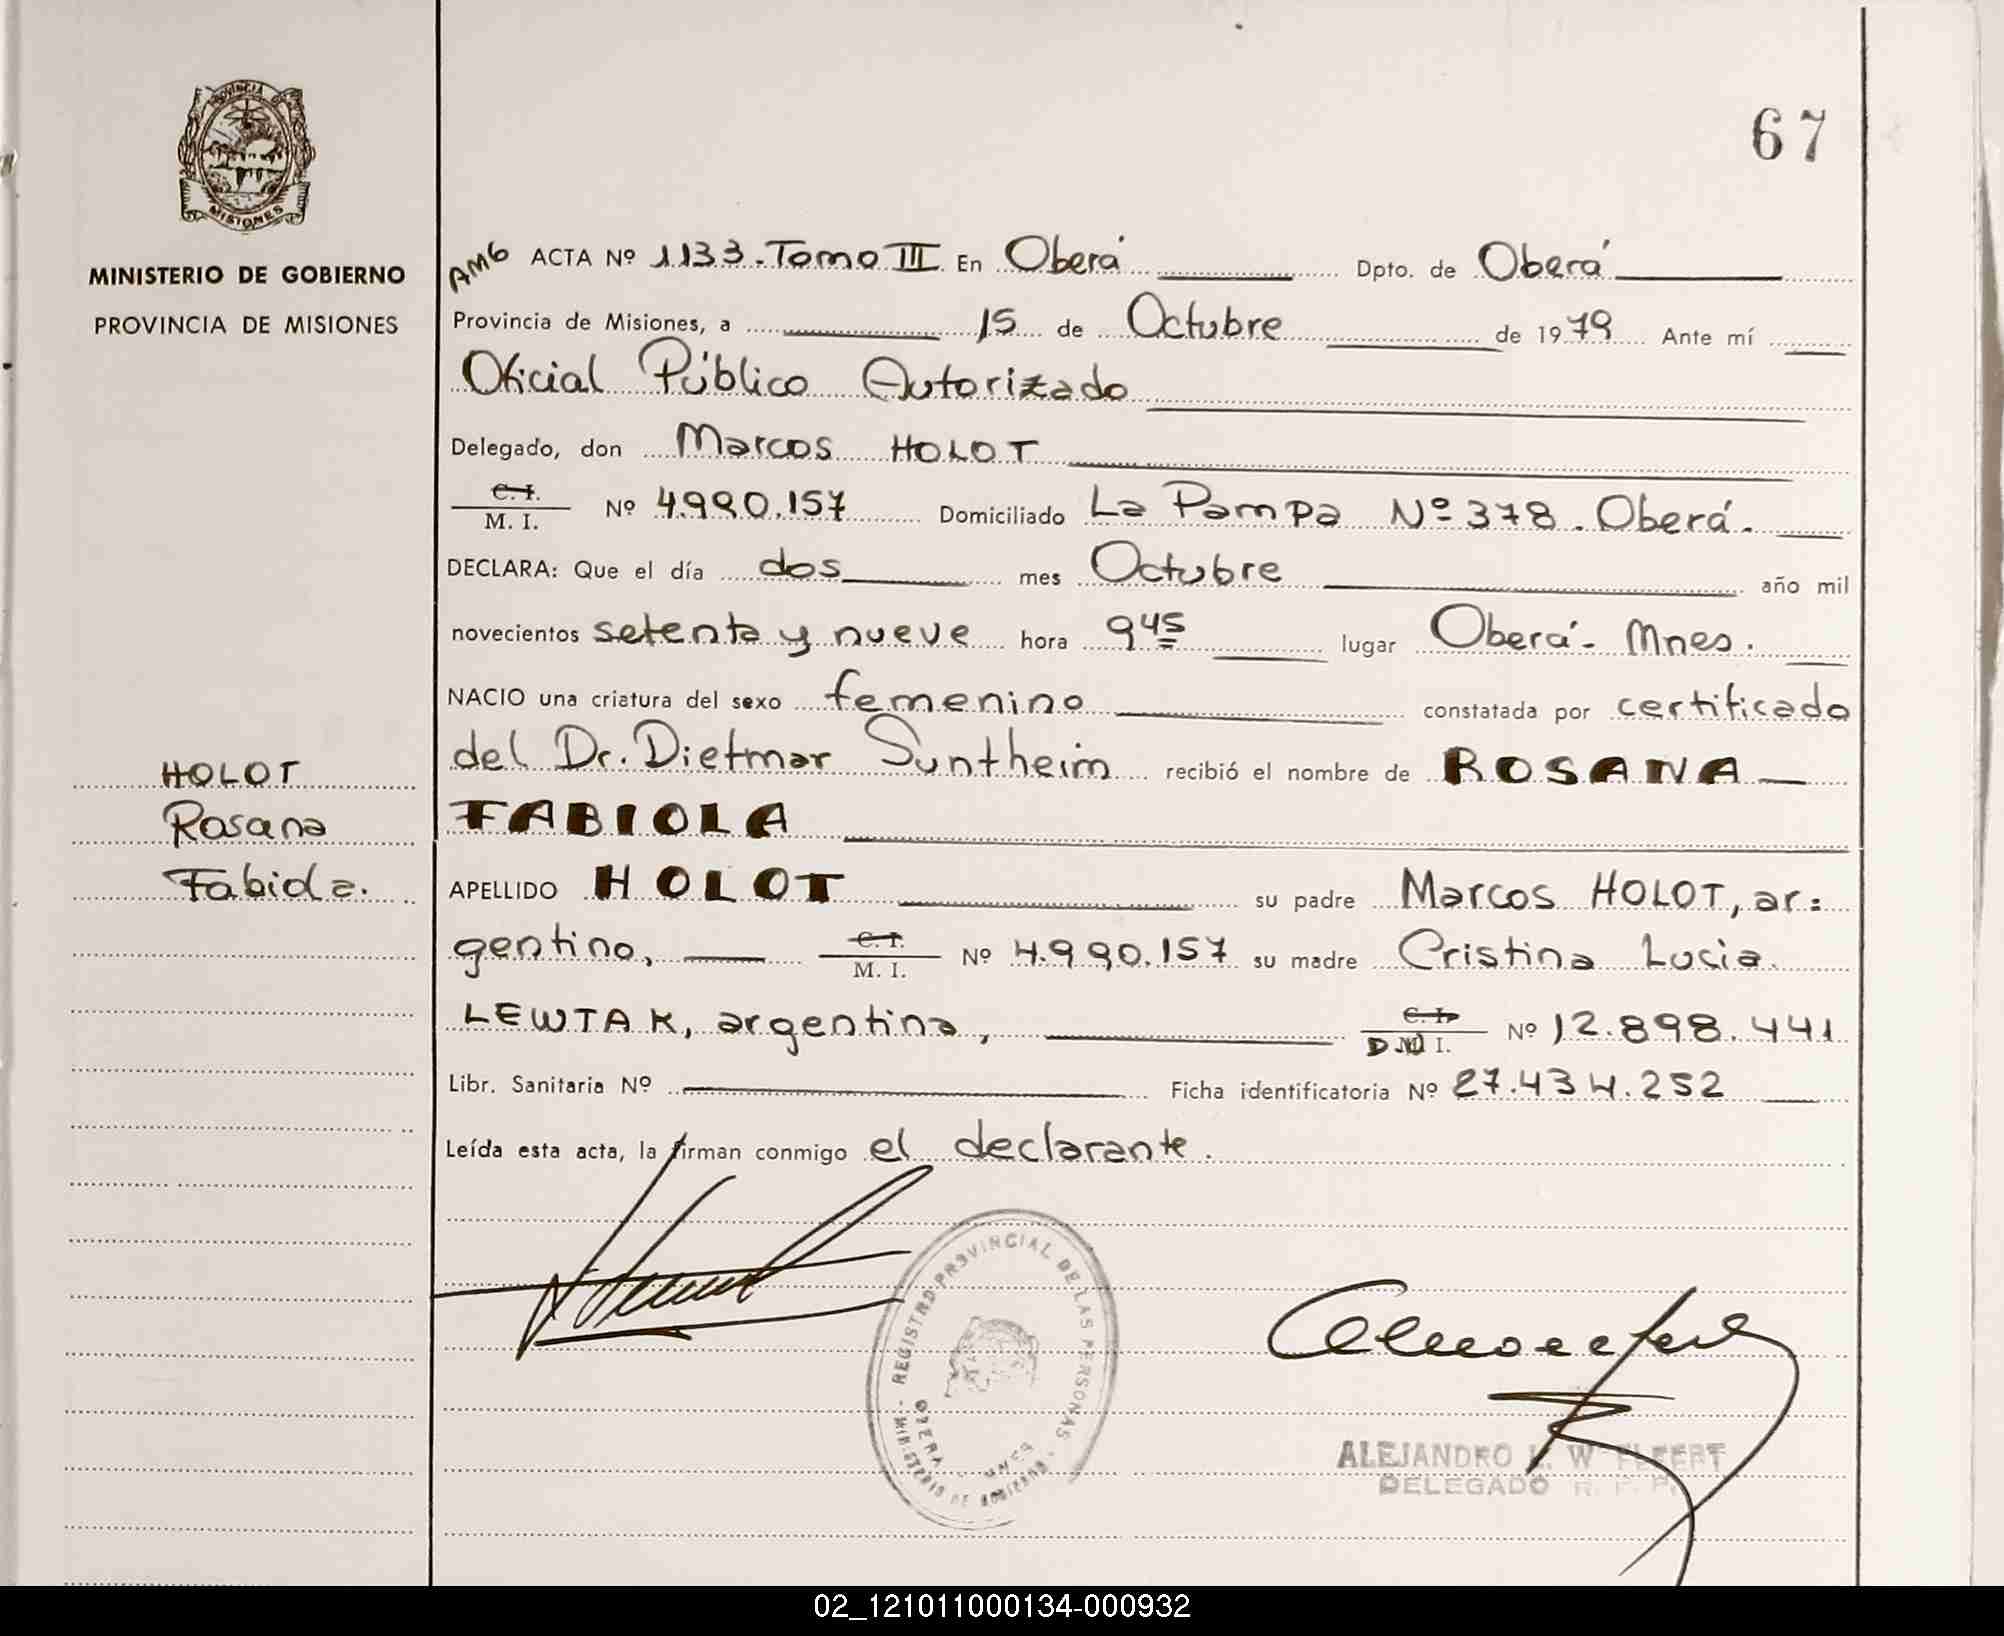 PROVINCIA DE
MISIONES
MINISTERIO DE GOBIERNO
PROVINCIA DE MISIONES
67
AMG ACTA Nº 1133. Tomo III En Oberá Dpto. de Oberá
Provincia de Misiones, a 15 de Octubre de 1979 Ante mí
Oficial Público Autorizado
Delegado, don Marcos HOLOT
C. I.
M. I. Nº 4.990.157 Domiciliado La Pampa Nº 378. Oberá.
DECLARA: Que el día dos mes Octubre año mil
novecientos setenta y nueve hora 9 45 lugar Oberá - Mnes.
NACIO una criatura del sexo femenino constatada por certificado
del Dr. Dietmar Suntheim recibió el nombre de ROSANA
FABIOLA
HOLOT
Rosana
Fabiola.
APELLIDO HOLOT su padre Marcos HOLOT, ar=
gentino, C. I. M. I. Nº 4.990.157 su madre Cristina Lucia
LEWTAK, argentina, C. I. D.N I. Nº 12.898.441
Libr. Sanitaria Nº Ficha identificatoria Nº 27.434.252
Leída esta acta, la firman conmigo el declarante.
REGISTRO PROVINCIAL DE LAS PERSONAS
MINISTERIO DE GOBIERNO
OBERA MNES
ALEJANDRO L. W
DELEGADO R. P. P.
02_121011000134-000932